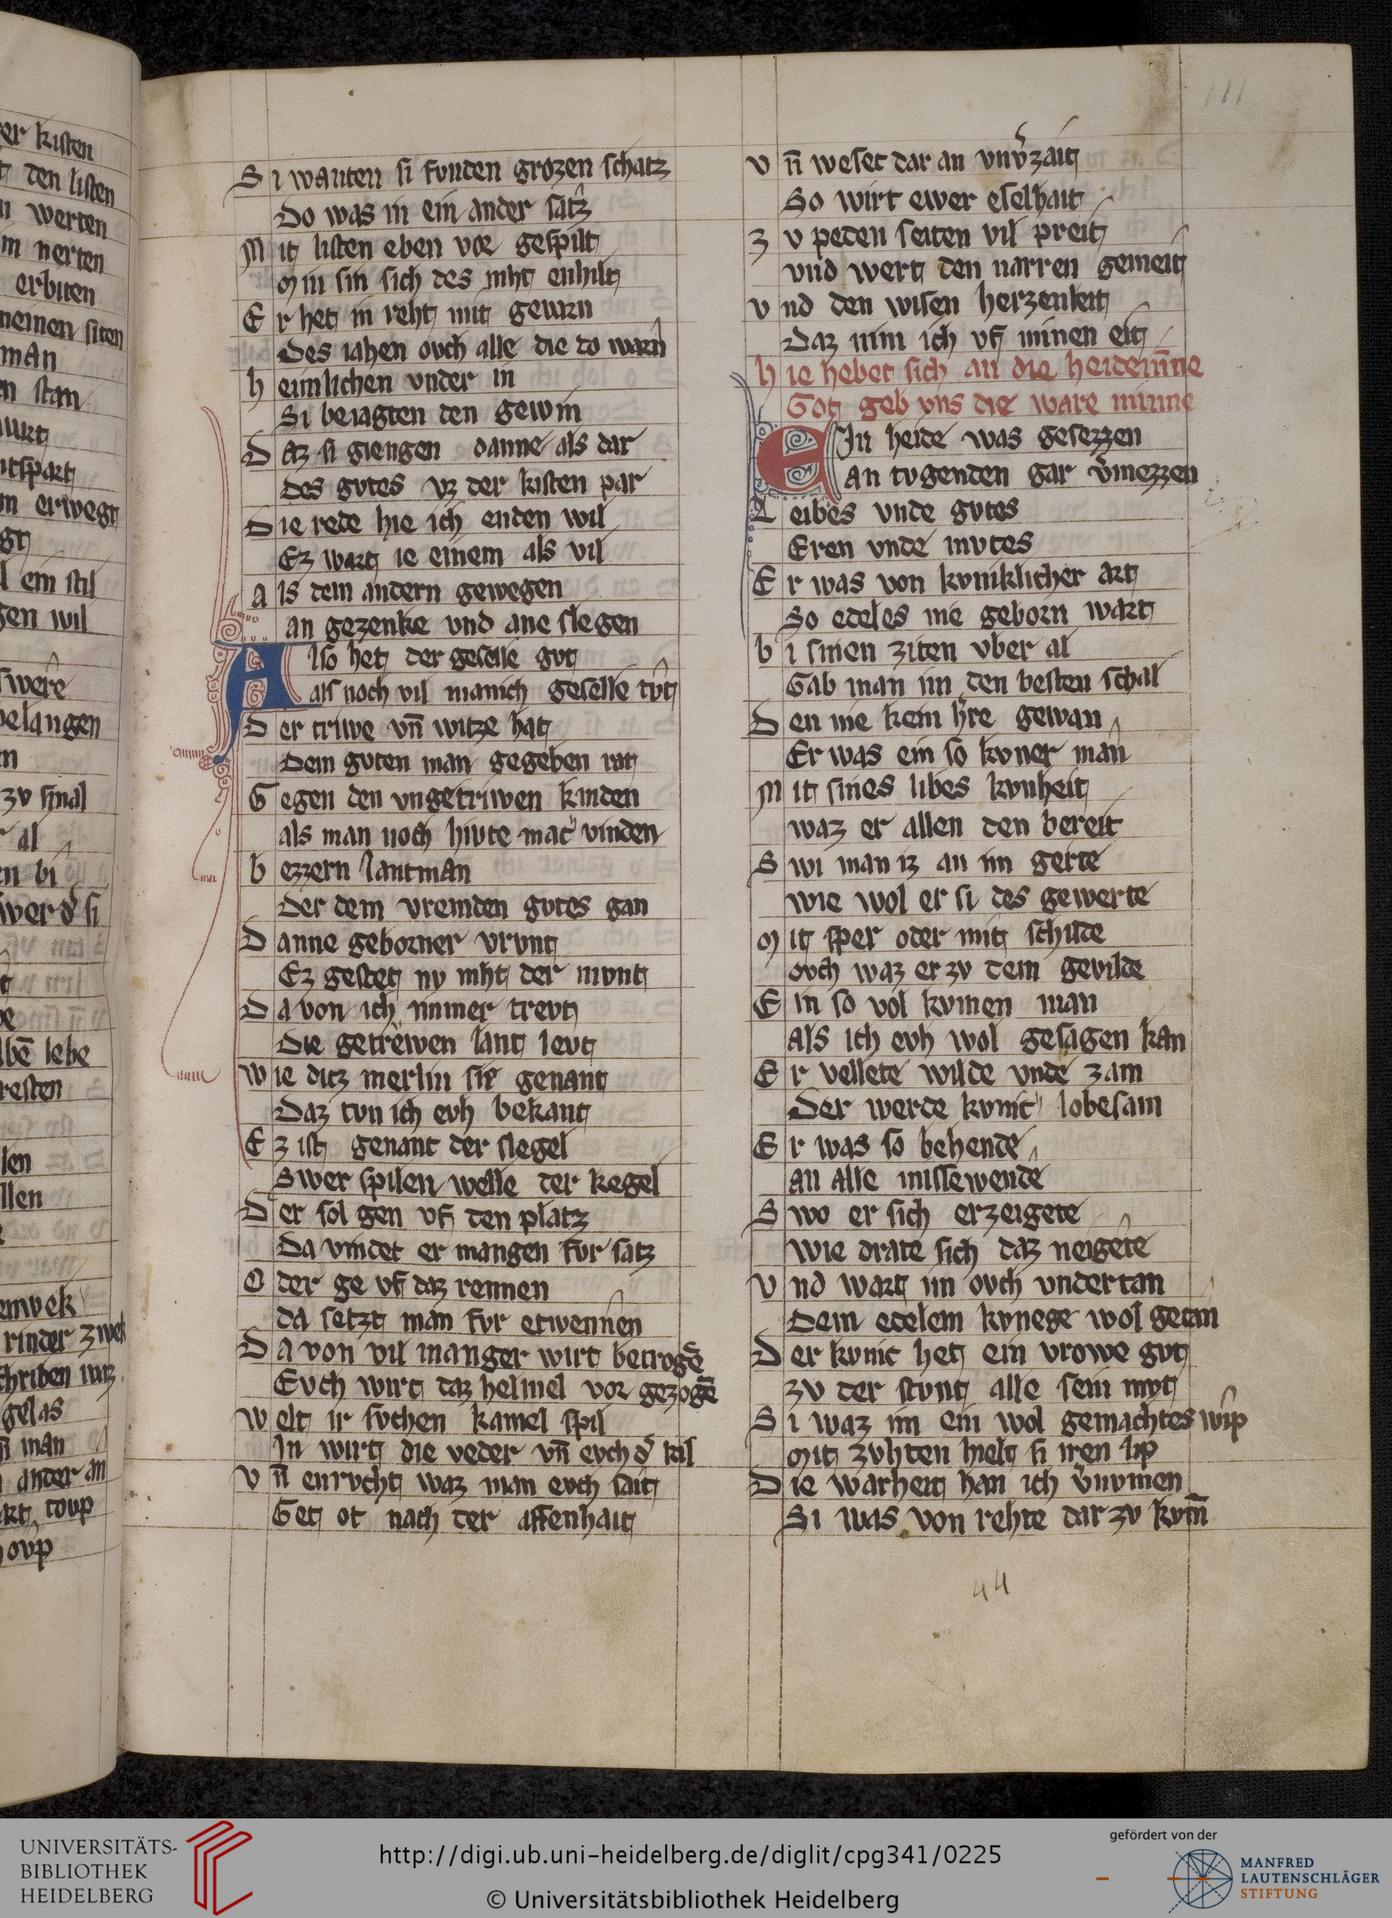 er kisten
den listen
werten
nerten
erbiten
meinen siten
man
stan
erwegt
em stil
gen wil
belangen
zv sinal
al
en bi
swer dͤ si
lebe
resten
len
llen
rinder
gelas
man
ander an
111
Si wanten si funden grozen schatz
Do was in ein ander satz
Mit listen eben vor gespilt
Min sin sich des niht enhilt
Er het in reht mit gewarn
Des iahen ovch alle die do warn
heimlichen vnder in
Si beiagten den gewin
Daz si giengen danne als dar
Des gvtes vz der kisten par
Die rede hie ich enden wil
Ez wart ie einem als vil
Als dem andern gewegen
an gezenke vnd ane slegen
Also het der geselle gvt
als noch vil manich geselle tvt
Der triwe vn̄ witze hat
Dem gvten man gegeben rat
Gegen den vngetriwen kinden
als man noch hivte mac vinden
bezzern lantman
Der dem vremden gvtes gan
Danne geborner vrvnt
Ez gestet nv niht der mvnt
Da von ich immer trevt
Die getrewen lant levt
Wie ditz merlin sie genant
Daz tvn ich evh bekant
Ez ist genant der slegel
Swer spilen welle der kegel
Der sol gen vf den platz
Da vindet er mangen fvr satz
Oder ge vf daz rennen
da setzt man fvr etwennen
Da von vil manger wirt betrogē
Evch wirt daz helmel vor gezogē
Welt ir svchen kamel spil
In wirt die veder vn̄ evch dͤ kil
Vn̄ enrvcht waz man evch sait
Get ot nach der affenhait
Vn̄ weset dar an vnv̓zait
So wirt ewer eselhait
Zv peden seiten vil preit
vnd wert den narren gemeit
Vnd den wisen herzenleit
Daz nim ich vf minen eit
Hie hebet sich an die heideiñne
Got geb vns die ware minne
Ein heide was gesezzen
an tvgenden gar v̓mezzen
Leibes vnde gvtes
Eren vnde mvtes
Er was von kvniklicher art
So edeles nie geborn wart
bi sinen ziten vber al
Gab man im den besten schal
Den nie kein h̓re gewan
Er was ein so kvner man
Mit sines libes kvnheit
waz er allen den bereit
Swi man iz an im gerte
wie wol er si des gewerte
Mit sper oder mit schilde
ovch waz er zv dem gevilde
Ein so vol kvmen man
als ich evh wol gesagen kan
Er vellete wilde vnde zam
Der werde kvnic lobesam
Er was so behende
an alle missewende
Swo er sich erzeigete
wie drate sich daz neigete
Vnd wart im ovch vndertan
Dem edelem kvnege wol getan
Der kvnic het ein vrowe gvt
zv der stvnt alle sein mvt
Si waz im ein wol gemachtes wip
Mit zvhten hielt si iren lip
Die warheit han ich v̓nvmen
Si was von rehte dar zv kvm̄
44
UNIVERSITÄTS-
BIBLIOTHEK
HEIDELBERG
http://digi.ub.uni-heidelberg.de/diglit/cpg341/0225
© Universitätsbibliothek Heidelberg
gefördert von der
MANFRED
LAUTENSCHLÄGER
STIFTUNG